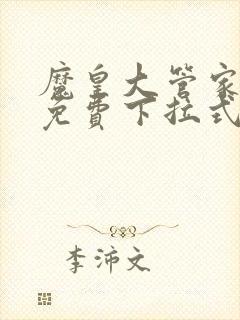 魔皇大管家
免费下拉式
李沛文